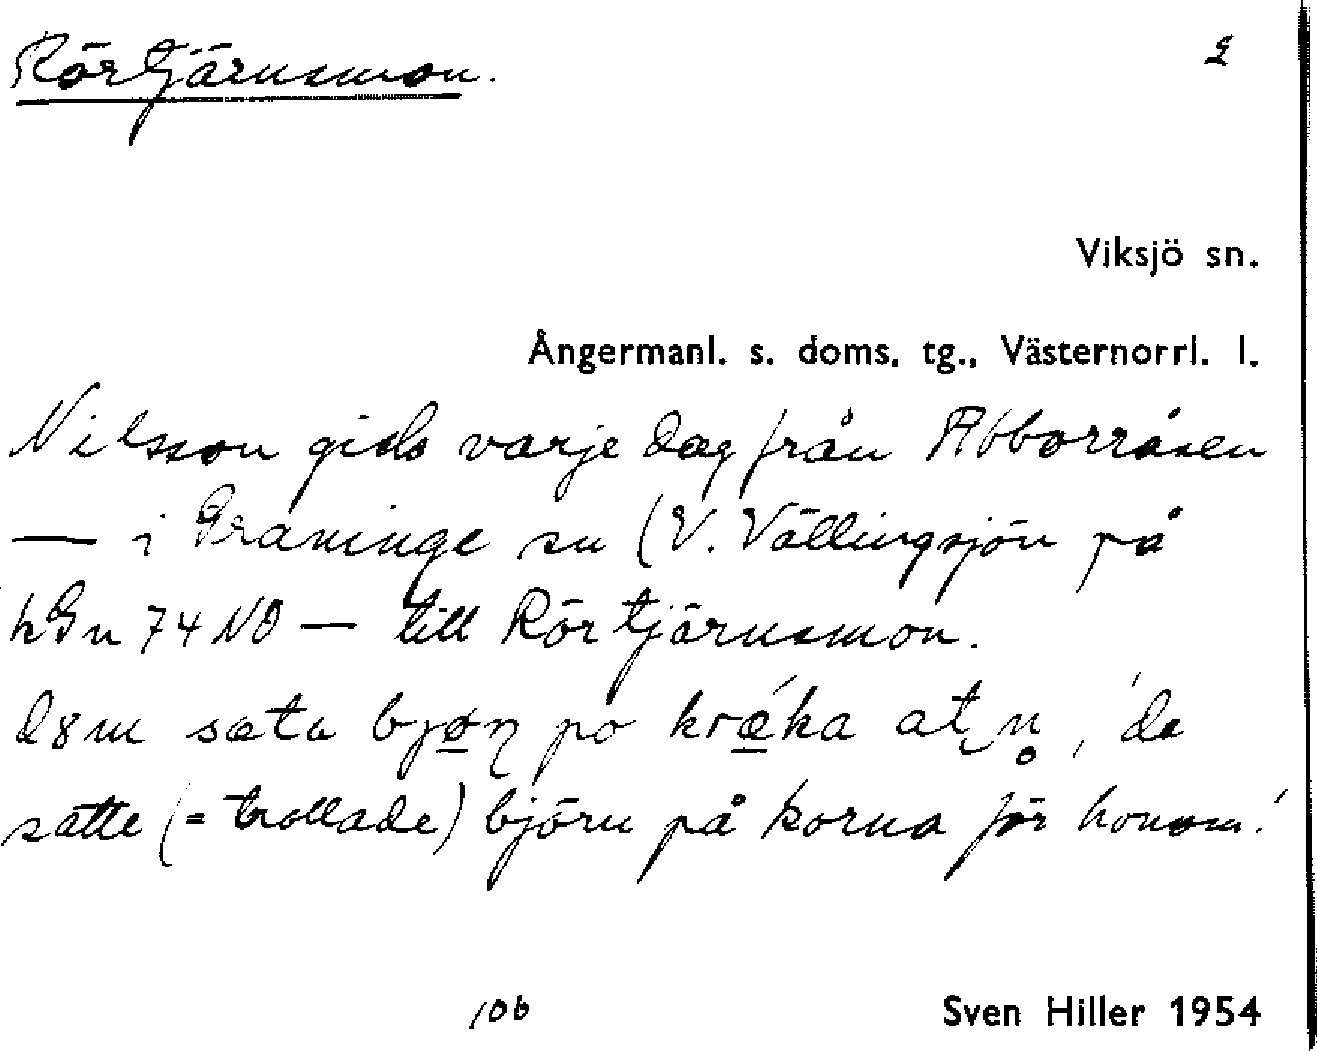 Rörtjärnsmon. 2
Viksjö sn.
Ångermanl. s. doms. tg., Västernorrl. l.
Nilsson gick varje dag från Abborråsen
— i Graninge sn (V. Vällingsjön på
hGn 74 NO — till Rörtjärnsmon.
sata po kræ´ka 'de
satte (= trollade) björn på korna för honom.'
106 Sven Hiller 1954